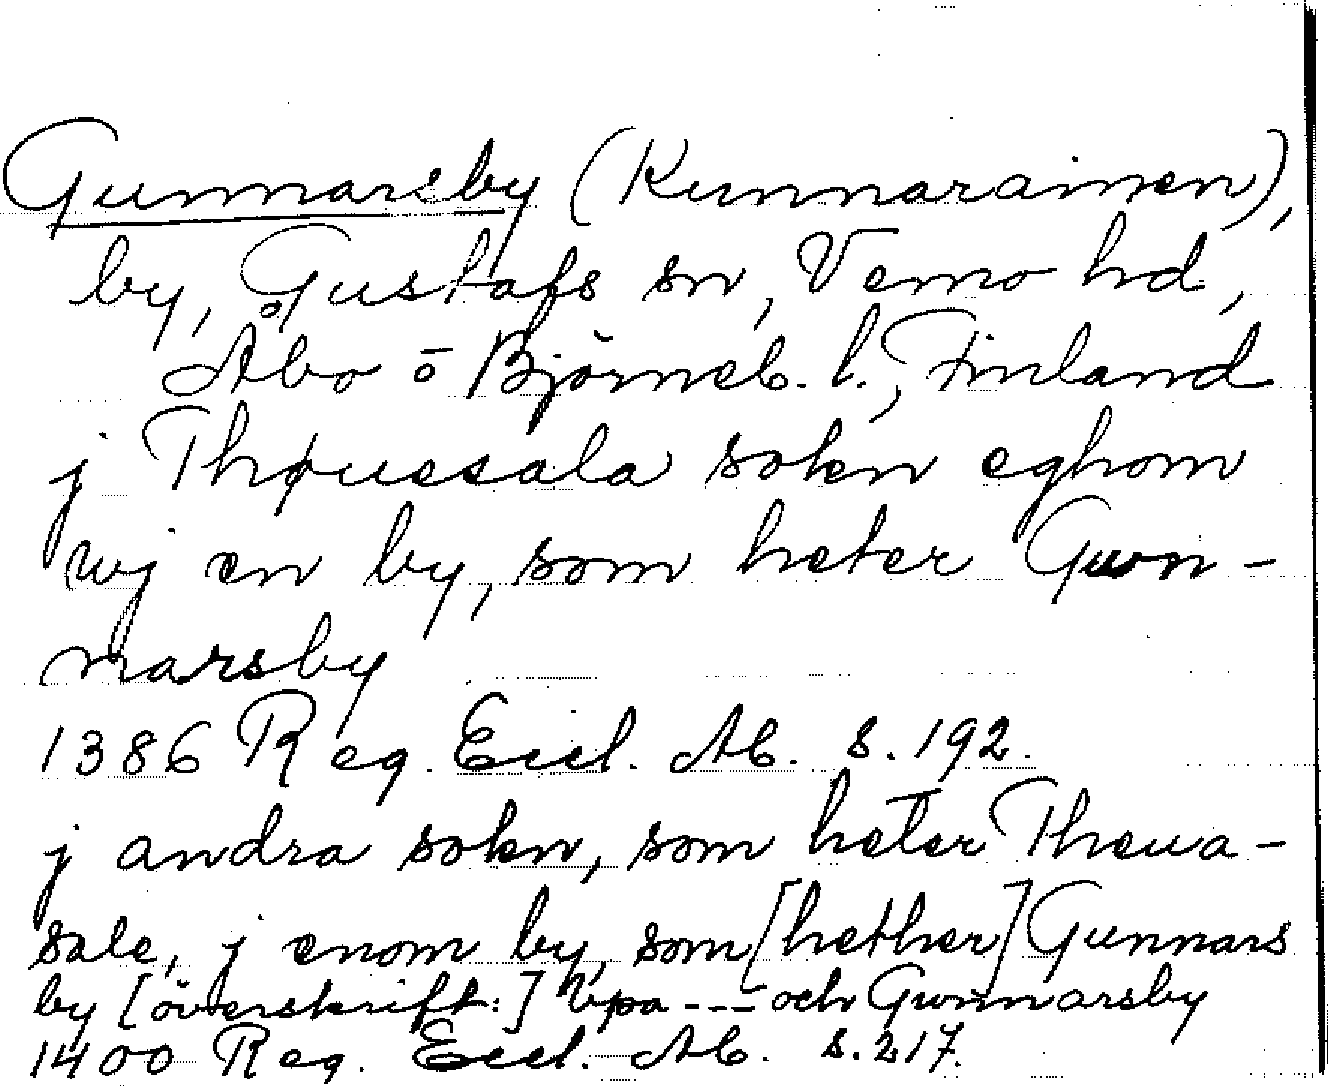 Gunnarsby (Kunnarainen),
by, Gustafs sn, Vemo hd,
Åbo o Björneb. l., Finland
j Thøuesala sokn eghom
wj en by, som heter Gwn-
narsby
1386 Reg. Eccl. Ab. s. 192.
j andra sokn, som heter Theua-
sale, j enom by, som [hether] Gunnars
by [överskrift:] Vpa --- och Gwnnarsby
1400 Reg. Eccl. Ab. s. 217.